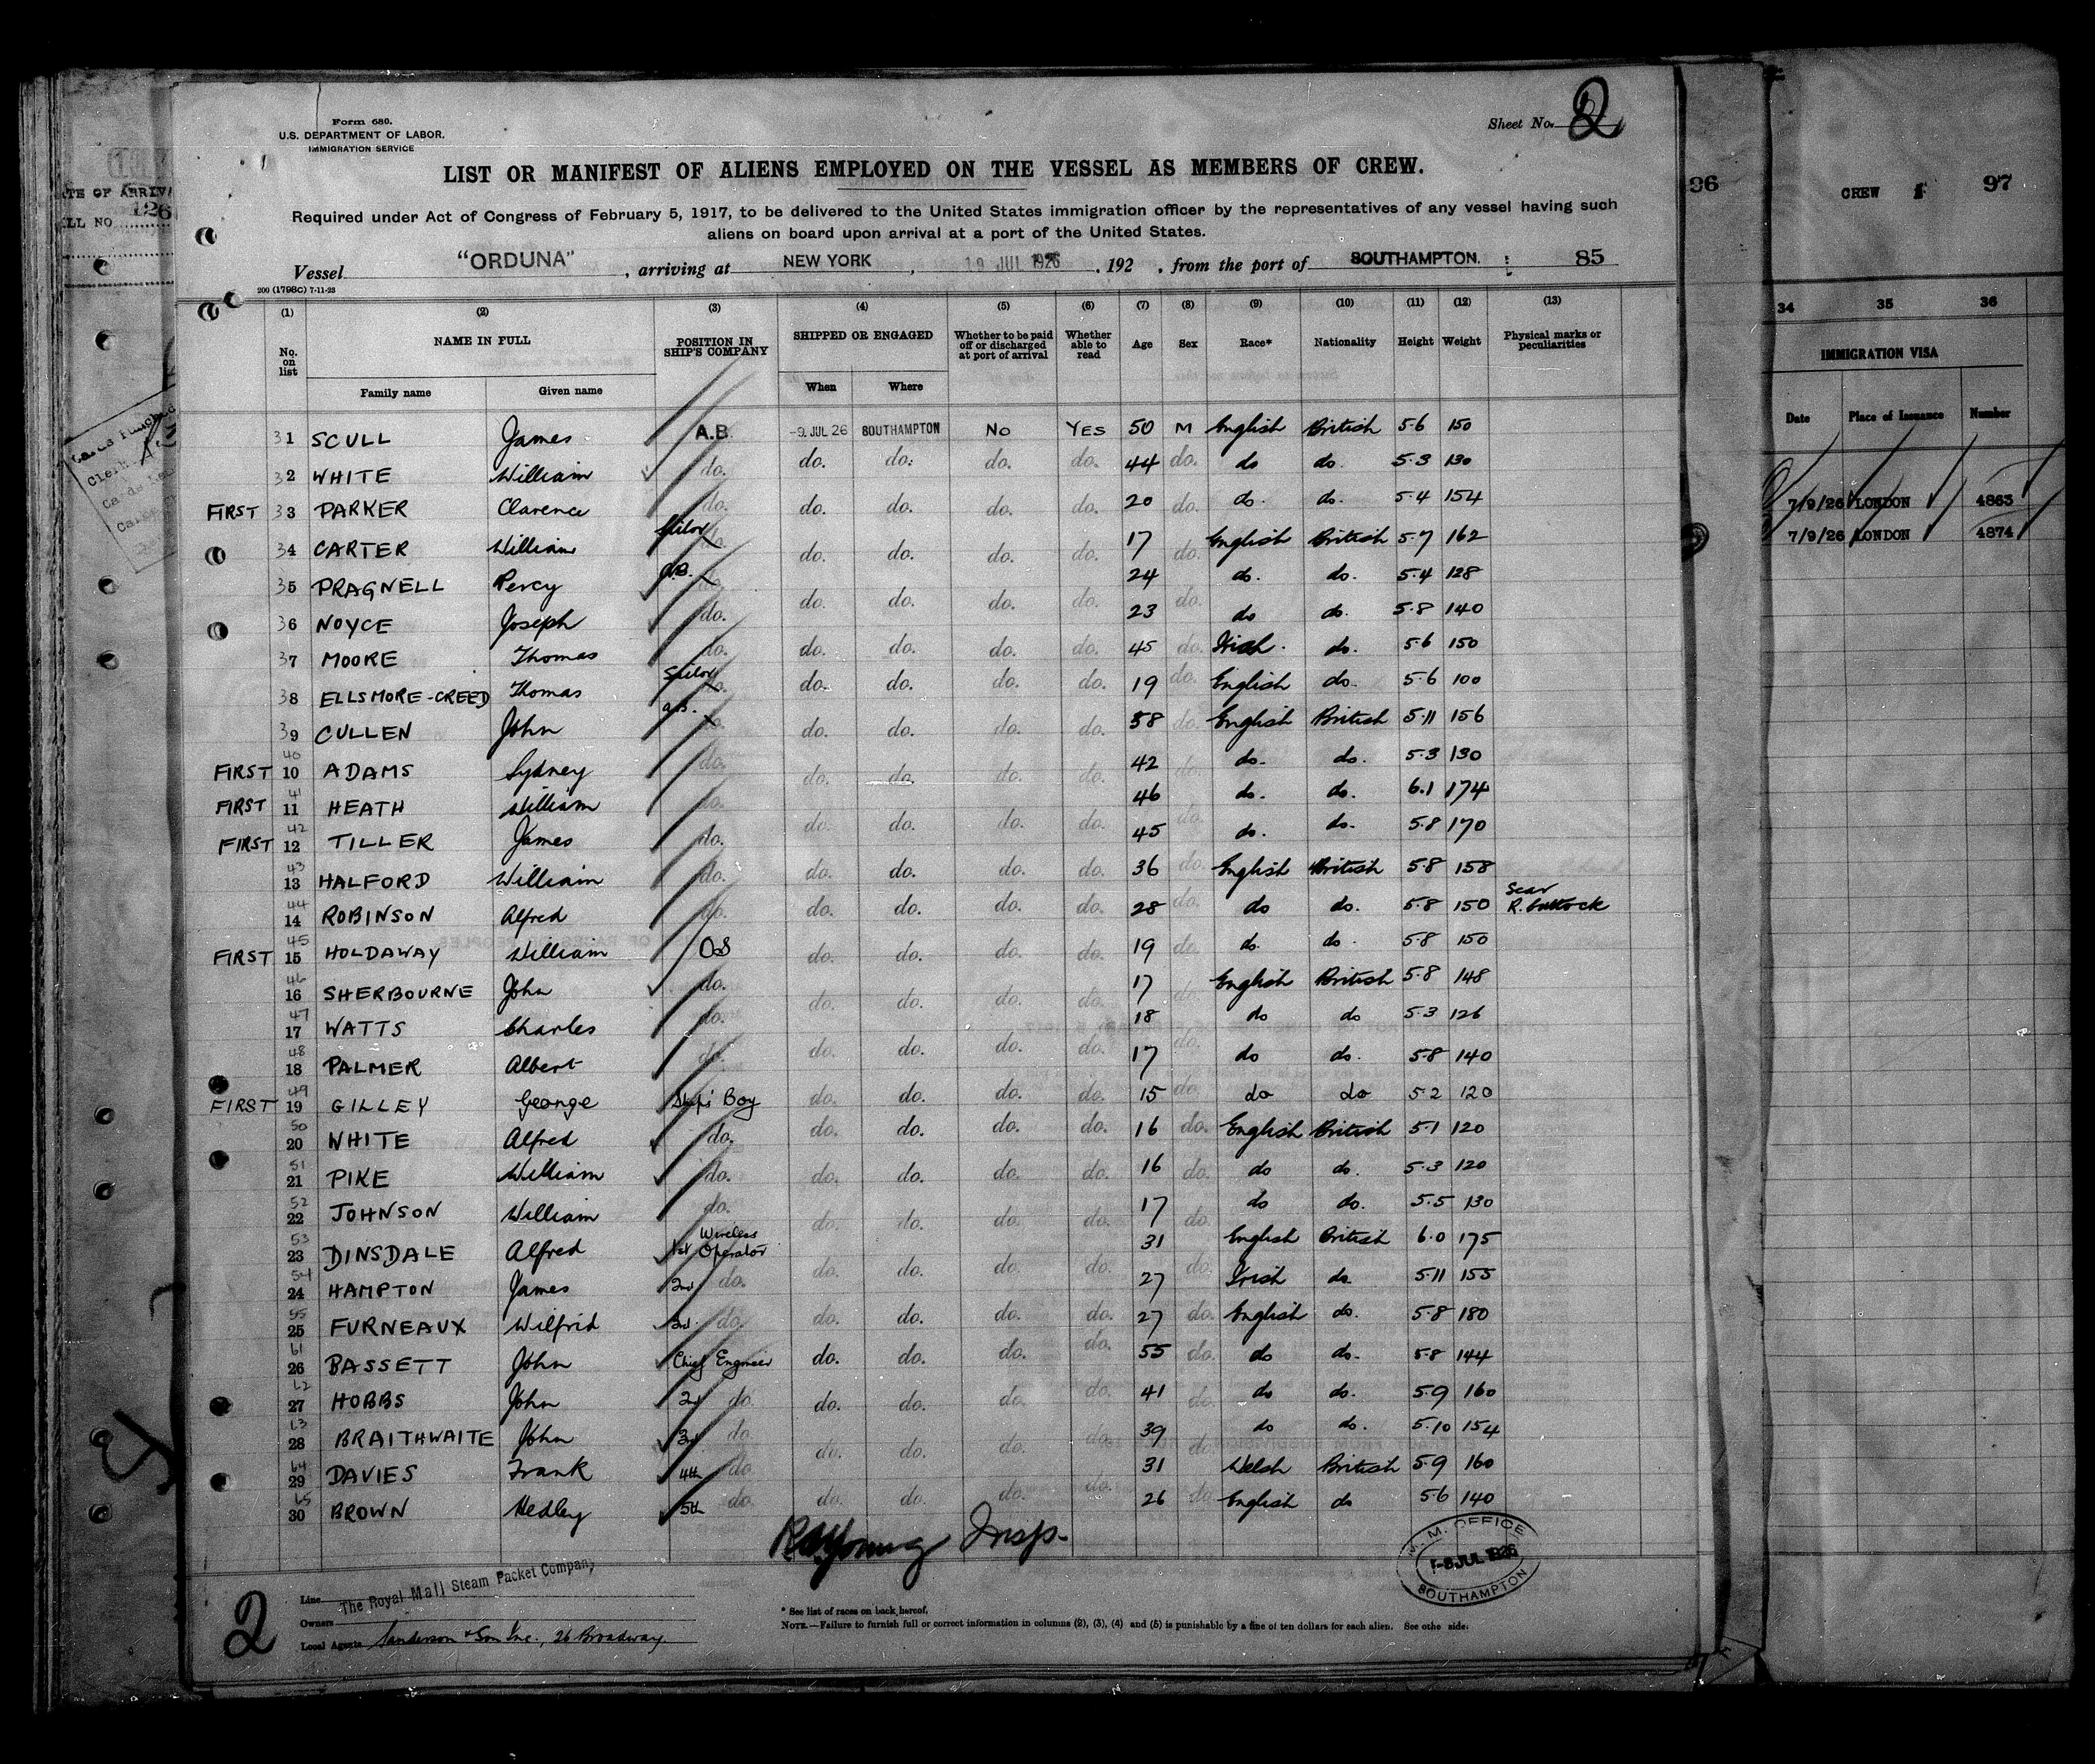 Form 680.
U.S. DEPARTMENT OF LABOR.
IMMIGRATION SERVICE
Sheet No. 2
LIST OR MANIFEST OF ALIENS EMPLOYED ON THE VESSEL AS MEMBERS OF CREW.
Required under Act of Congress of February 5, 1917, to be delivered to the United States immigration officer by the representatives of any vessel having such
aliens on board upon arrival at a port of the United States.
Vessel "ORDUNA", arriving at NEW YORK, 19 JUL 1926, 192 , from the port of SOUTHAMPTON. 85
200 (1798C) 7-11-23
(1) (2) (3) (4) (5) (6) (7) (8) (9) (10) (11) (12) (13)
No. on list NAME IN FULL POSITION IN SHIP'S COMPANY SHIPPED OR ENGAGED Whether to be paid off or discharged at port of arrival Whether able to read Age Sex Race* Nationality Height Weight Physical marks or peculiarities
Family name Given name When Where
31 SCULL James A.B. -9 JUL 26 SOUTHAMPTON No YES 50 M English British 5·6 150
32 WHITE William do. do. do. do. do. 44 do. do do. 5·3 130
FIRST 33 PARKER Clarence do. do. do. do. do. 20 do. do. do. 5·4 154
34 CARTER William do. do. do. do. do. 17 do. English British 5·7 162
35 PRAGNELL Percy A.B. do. do. do. do. 24 do. do. do. 5·4 128
36 NOYCE Joseph do. do. do. do. do. 23 do. do do. 5·8 140
37 MOORE Thomas do. do. do. do. do. 45 do. Irish. do. 5·6 150
38 ELLSMORE-CREED Thomas do. do. do. do. do. 19 do. English do. 5·6 100
39 CULLEN John a.B. do. do. do. do. 58 do. English British 5·11 156
FIRST 40 10 ADAMS Sydney do. do. do. do. do. 42 do. do. do. 5·3 130
FIRST 41 11 HEATH William do. do. do. do. do. 46 do. do. do. 6·1 174
FIRST 42 12 TILLER James do. do. do. do. do. 45 do. do. do. 5·8 170
43 13 HALFORD William do. do. do. do. do. 36 do. English British 5·8 158
44 14 ROBINSON Alfred do. do. do. do. do. 28 do. do do. 5·8 150 Scar R. buttock
FIRST 45 15 HOLDAWAY William OS do. do. do. do. 19 do. do. do. 5·8 150
46 16 SHERBOURNE John do. do. do. do. do. 17 do. English British 5·8 148
47 17 WATTS Charles do. do. do. do. do. 18 do. do do 5·3 126
48 18 PALMER Albert do. do. do. do. do. 17 do. do do. 5·8 140
FIRST 49 19 GILLEY George Ship's Boy do. do. do. do. 15 do do do 5·2 120
50 20 WHITE Alfred do. do. do. do. do. 16 do. English British 5·1 120
51 21 PIKE William do. do. do. do. do. 16 do. do do. 5·3 120
52 22 JOHNSON William do. do. do. do. do. 17 do. do do. 5·5 130
53 23 DINSDALE Alfred 1st Wireless Operator do. do. do. do. 31 do. English British 6·0 175
54 24 HAMPTON James 2nd do. do. do. do. do. 27 do. Irish do. 5·11 155
55 25 FURNEAUX Wilfrid 3rd. do. do. do. do. do. 27 do. English do. 5·8 180
61 26 BASSETT John Chief Engineer do. do. do. do. 55 do. do do. 5·8 144
62 27 HOBBS John 2nd do. do. do. do. do. 41 do. do do. 5·9 160
63 28 BRAITHWAITE John 3rd do. do. do. do. do. 39 do. do do. 5·10 154
64 29 DAVIES Frank 4th do do. do. do. do. 31 do Welsh British 5·9 160
65 30 BROWN Hedley 5th do. do. do. do. do. 26 do English do 5·6 140
Young Insp.
M. M. OFFICE
JUL 1926
SOUTHAMPTON
Line The Royal Mail Steam Packet Company
Owners
Local Agents Sanderson & Son Inc., 26 Broadway.
2
* See list of races on back hereof.
NOTE.—Failure to furnish full or correct information in columns (2), (3), (4) and (5) is punishable by a fine of ten dollars for each alien. See othe side.
96
CREW 97
34 35 36
IMMIGRATION VISA
Date Place of Issuance Number
7/9/26 LONDON 4863
7/9/26 LONDON 4874
126